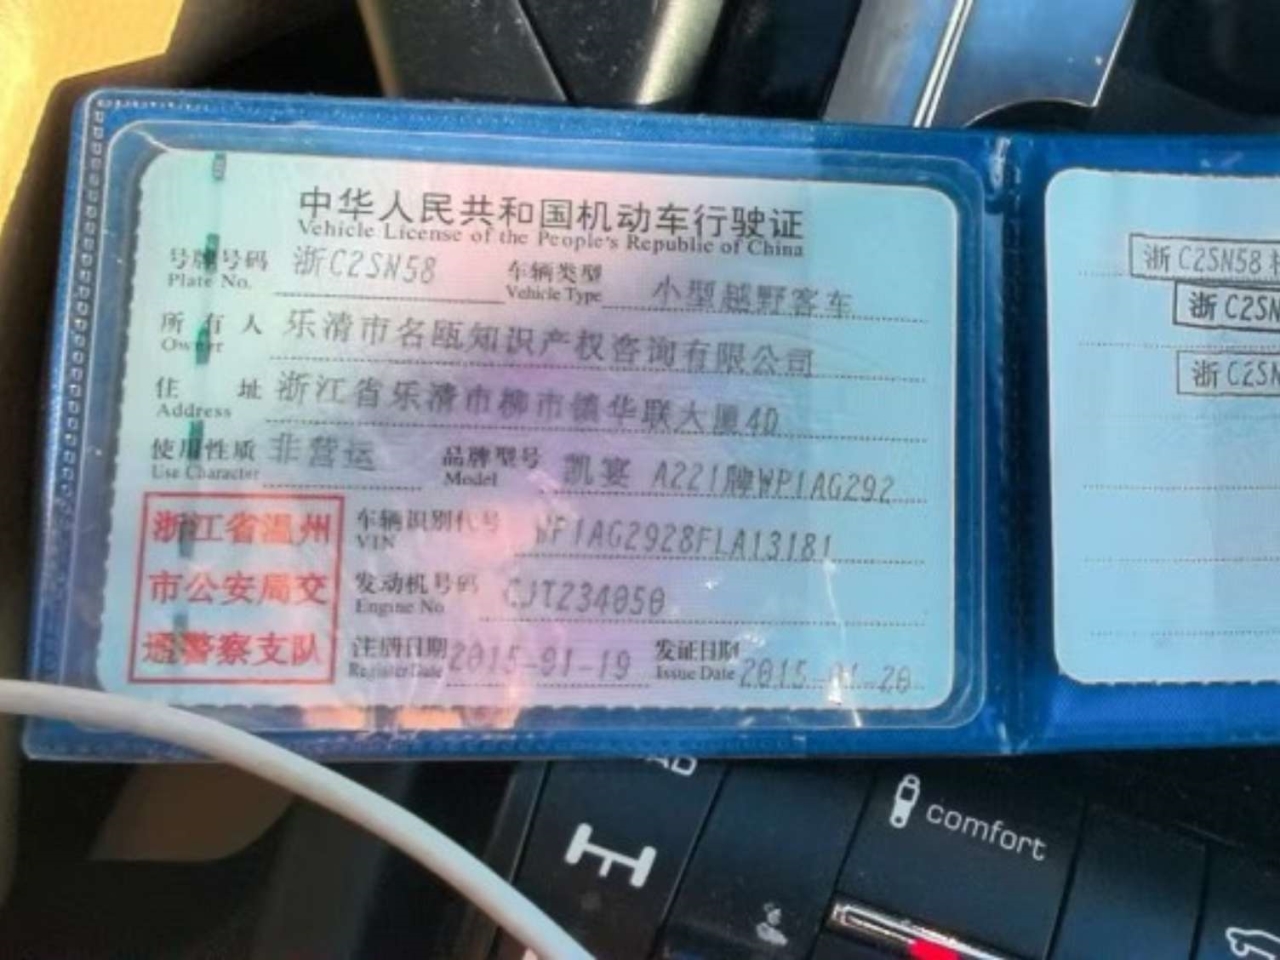 中华人民共和国机动车行驶证
Vehicle License of the People's Republic of China
号牌号码 浙C2SN58 车辆类型 小型越野客车
Plate No. Vehicle Type
所有人 乐清市名瓯知识产权咨询有限公司
Owner
住址 浙江省乐清市柳市镇华联大厦4D
Address
使用性质 非营运 品牌型号 凯宴 A221牌WP1AG292
Use Character Model
浙江省温州
市公安局交
通警察支队
车辆识别代号 WP1AG2928FLA13181
VIN
发动机号码 CJT234050
Engine No.
注册日期 2015-01-19 发证日期 2015-01-20
Register Date Issue Date
浙C2SN58
浙C2SN
浙C2SN
comfort